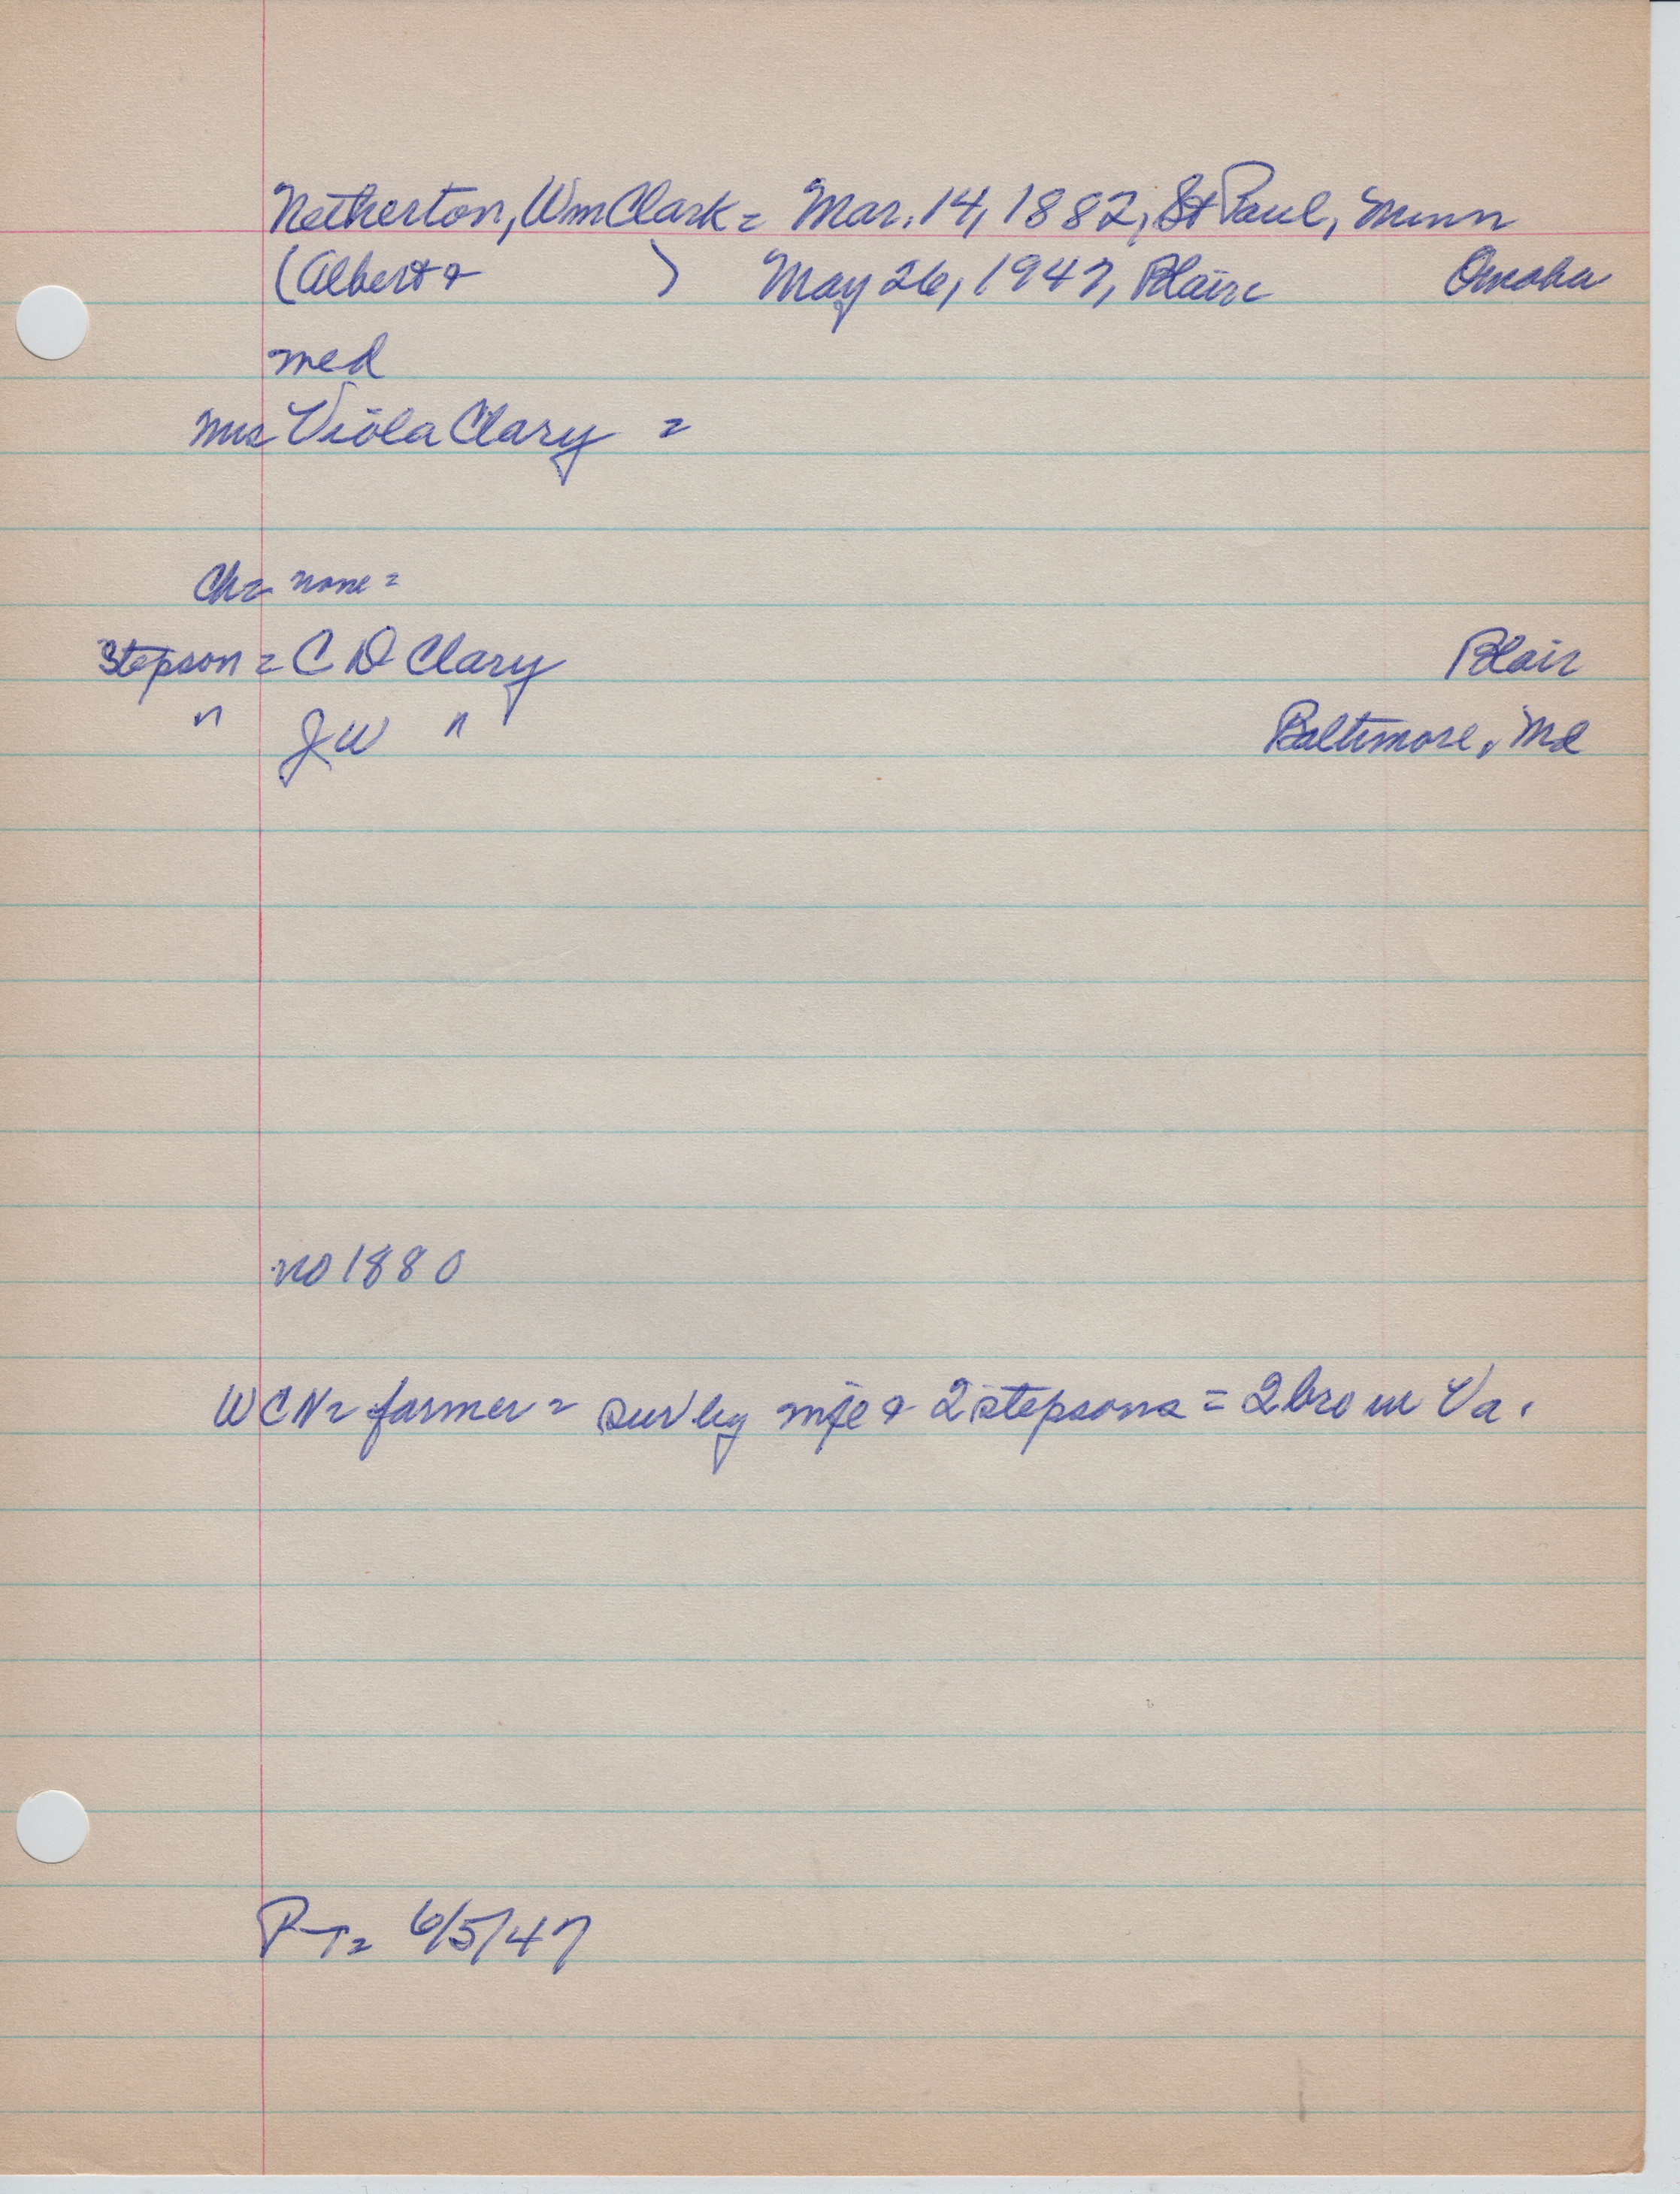 Netherton, Wm Clark = Mar. 14, 1882, St Paul, Minn
(Albert & ) May 26, 1947, Blair Omaha
med
Mrs Viola Clary =
Ch = none =
Stepson = C D Clary Blair
" J W " Baltimore, Md
no 1880
W C N = farmer = sur by wife & 2 stepsons = 2 bro in Va.
P-T = 6/5/47